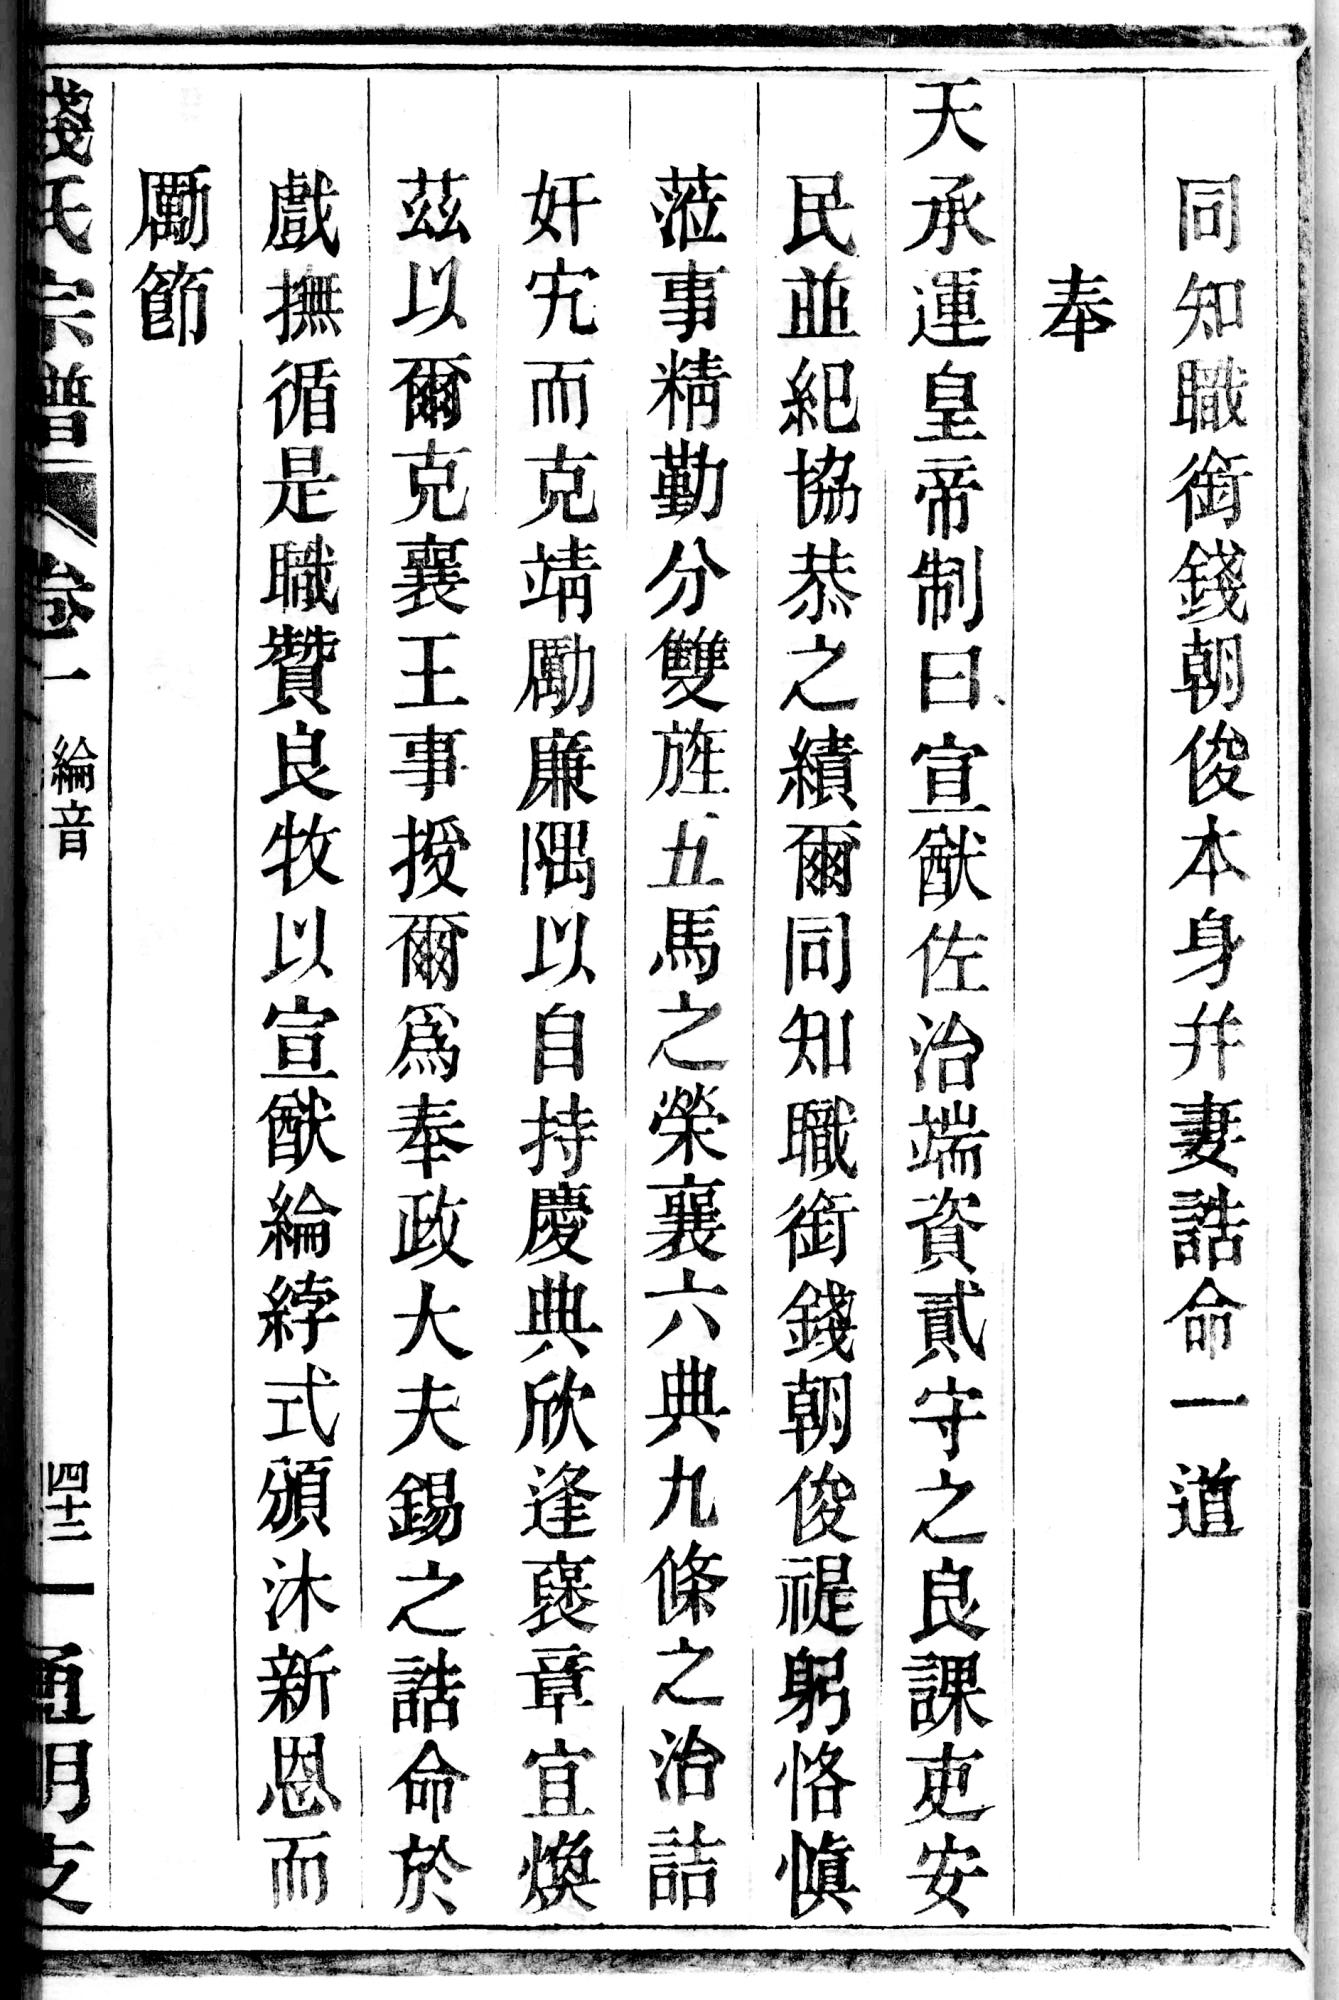 同知職銜錢朝俊本身幷妻誥命一道
奉
天承運皇帝制曰宣猷佐治端資貳守之良課吏安
民並紀協恭之績爾同知職銜錢朝俊禔躬恪愼
蒞事精勤分雙旌五馬之榮襄六典九條之治詰
奸宄而克靖勵廉隅以自持慶典欣逢褒章宜煥
茲以爾克襄王事授爾爲奉政大夫錫之誥命於
戲撫循是職贊良牧以宣猷綸綍式頒沐新恩而
勵節
錢氏宗譜 卷一 綸音 四十二 通明支